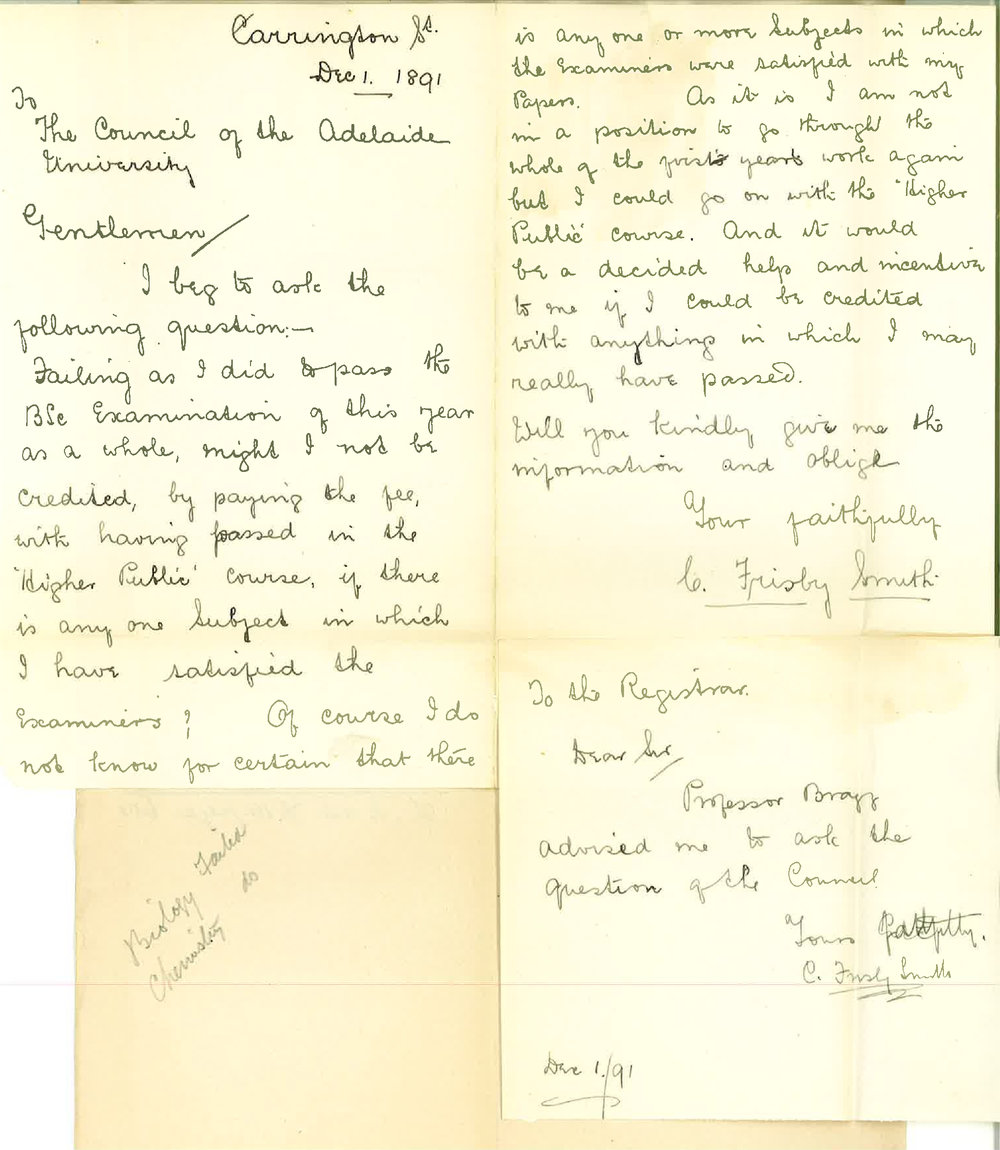 Carrington St.
Dec 1. 1891
To
The Council of the Adelaide
University
Gentlemen/
I beg to ask the
following question:—
Failing as I did to pass the
BSc Examination of this year
as a whole, might I not be
credited, by paying the fee,
with having passed in the
'Higher Public' course, if there
is any one Subject in which
I have satisfied the
Examiners? Of course I do
not know for certain that there
is any one or more Subjects in which
the Examiners were satisfied with my
Papers. As it is I am not
in a position to go through the
whole of the first years work again
but I could go on with the 'Higher
Public' course. And it would
be a decided help and incentive
to me if I could be credited
with anything in which I may
really have passed.
Will you kindly give me the
information and oblige
Your faithfully
C. Frisby Smith
To the Registrar.
Dear Sir/
Professor Bragg
advised me to ask the
question of the Council
Yours
C. Frisby Smith
Dec 1/91
Biology Failed
Chemistry do